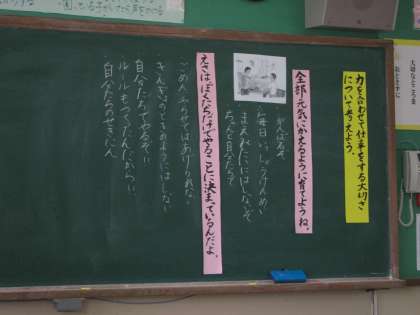 力を合わせて仕事をする大切さ
について考えよう。
全部元気にかえるように育てようね。
がんばるぞ
毎日いっしょうけんめい
まえみたいにはしないぞ
ちゃんと自分たちで
えさはぼくたちだけでやることに決まっているんだよ。
ごめん、ふりかけてはあげられない
きんぎょのときのようにはしない
自分たちでやるぞ
ルールもつくったんだから
自分たちのせきにん
大切なところを
おとさずに